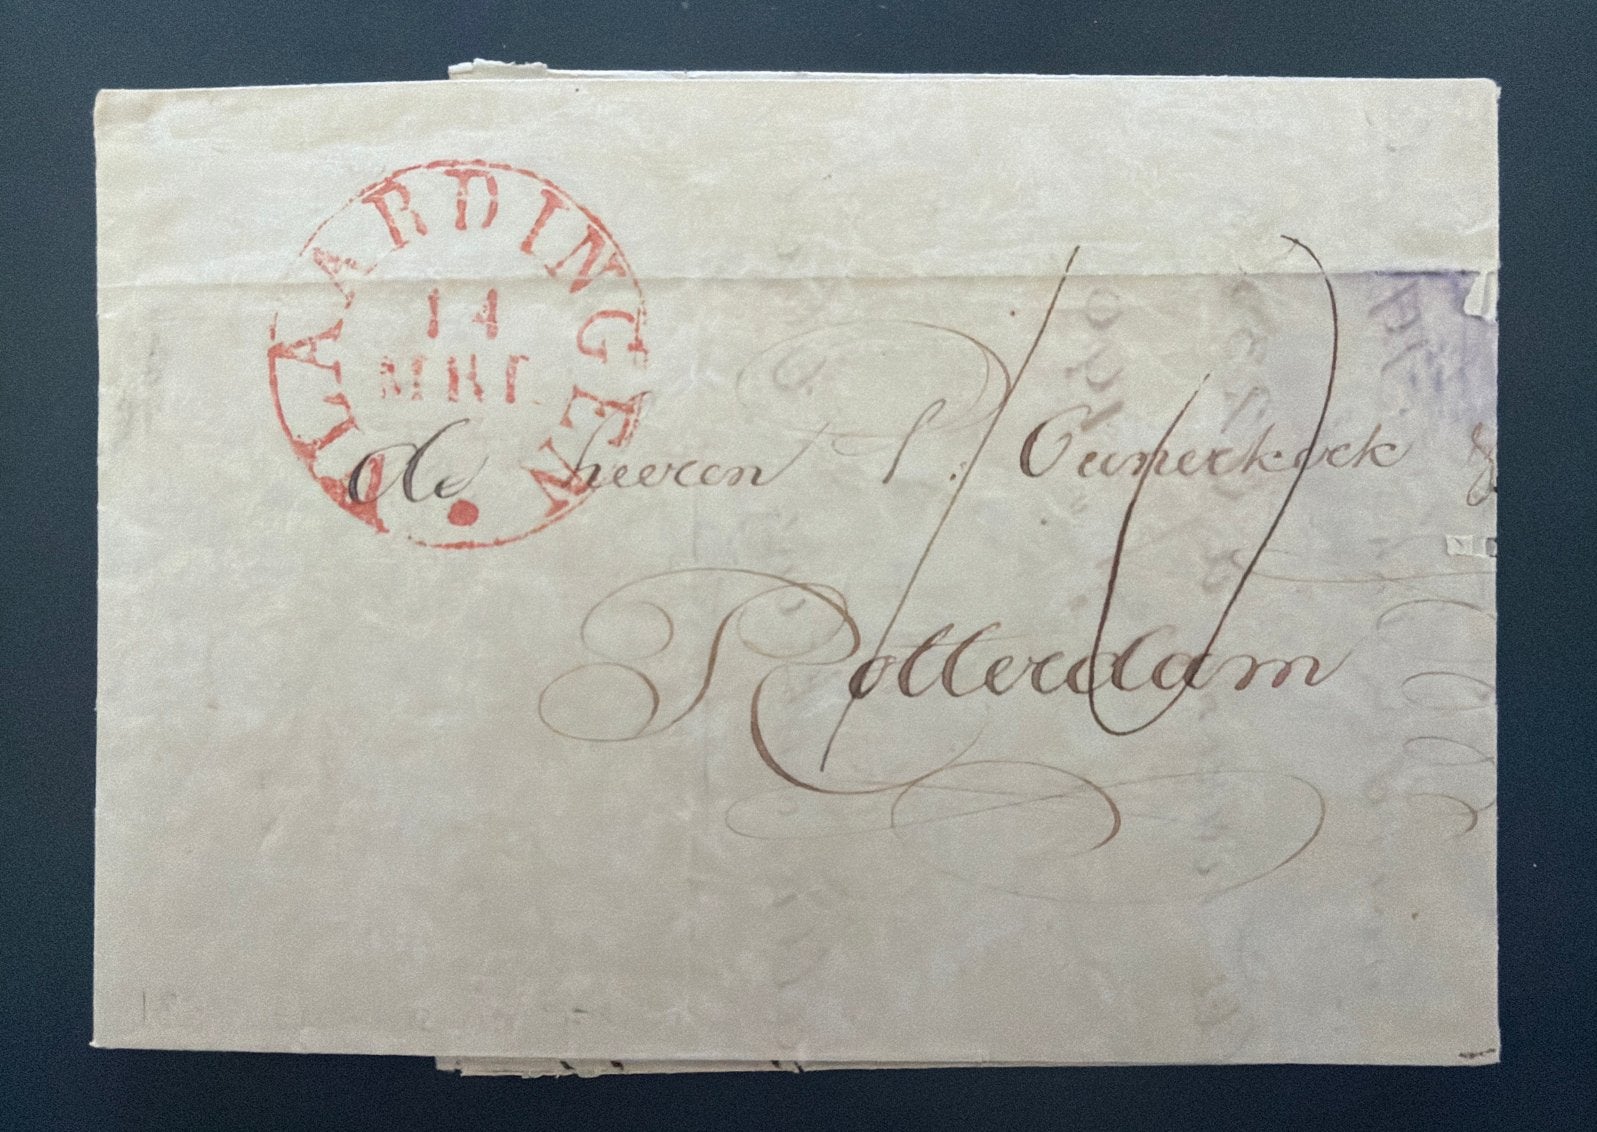 VLAARDINGEN
14
MRT
de heeren P: &
Rotterdam
10